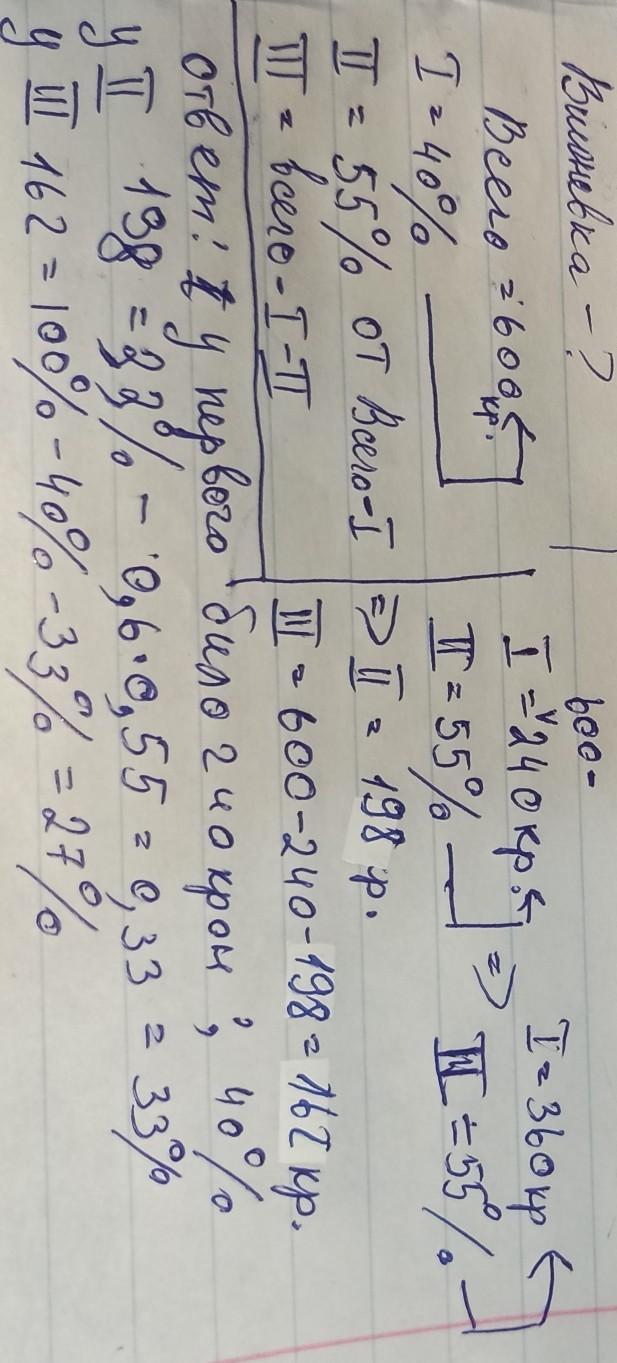 Вишневка - ?
Всего = 600 кр.
I = 40%
II = 55% от Всего-I
III = всего - I - II
600-
I = 240 кр.
II = 55%
=> II = 198 кр.
III = 600-240-198 = 162 кр.
I = 360 кр
=> III = 55%
ответ: у первого било 240 крон, 40%
у II 198 = 33% - 0,6·0,55 = 0,33 = 33%
у III 162 = 100% - 40% - 33% = 27%